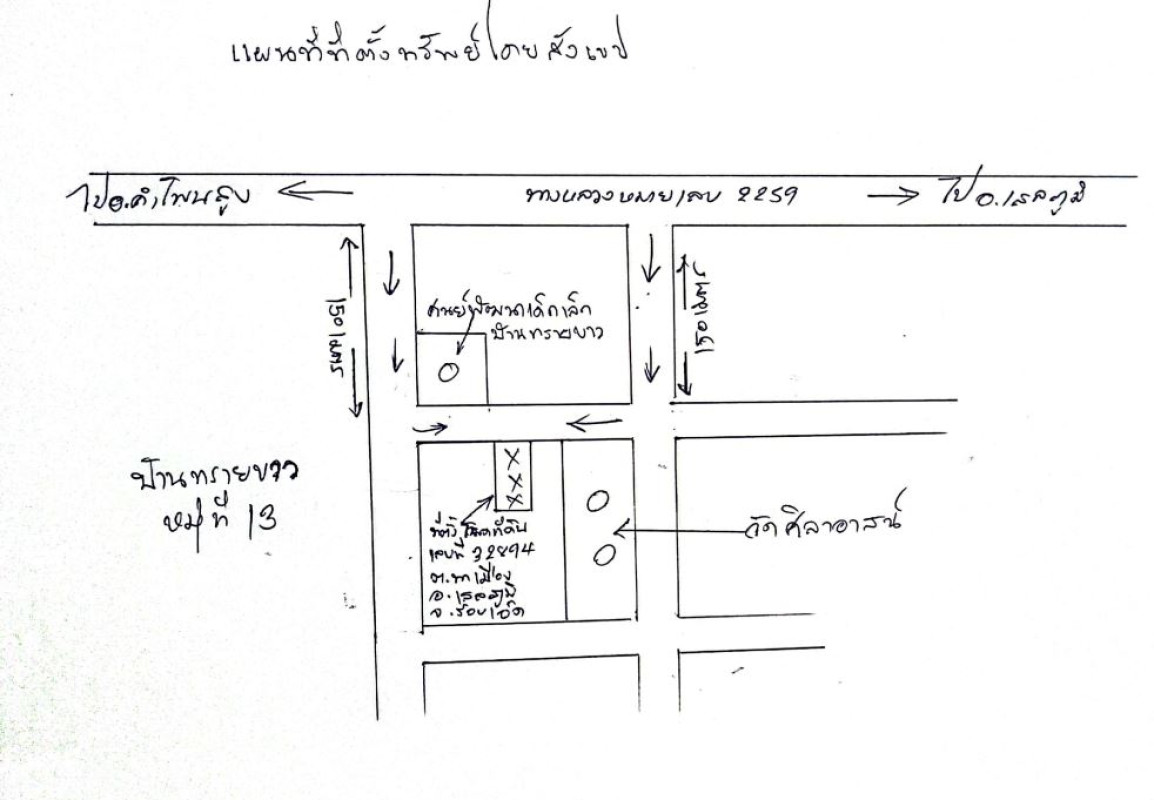 แผนที่ที่ตั้งทรัพย์โดยสังเขป
ไปอ.คำโพนสูง
ทางหลวงหมายเลข 2259
ไป อ.เสลภูมิ
150 เมตร
ศูนย์พัฒนาเด็กเล็ก
บ้านทรายขาว
150 เมตร
บ้านทรายขาว
หมู่ที่ 13
ที่ตั้งโฉนดที่ดิน
เลขที่ 32894
ต.นาเมือง
อ.เสลภูมิ
จ.ร้อยเอ็ด
วัดศิลาอาสน์